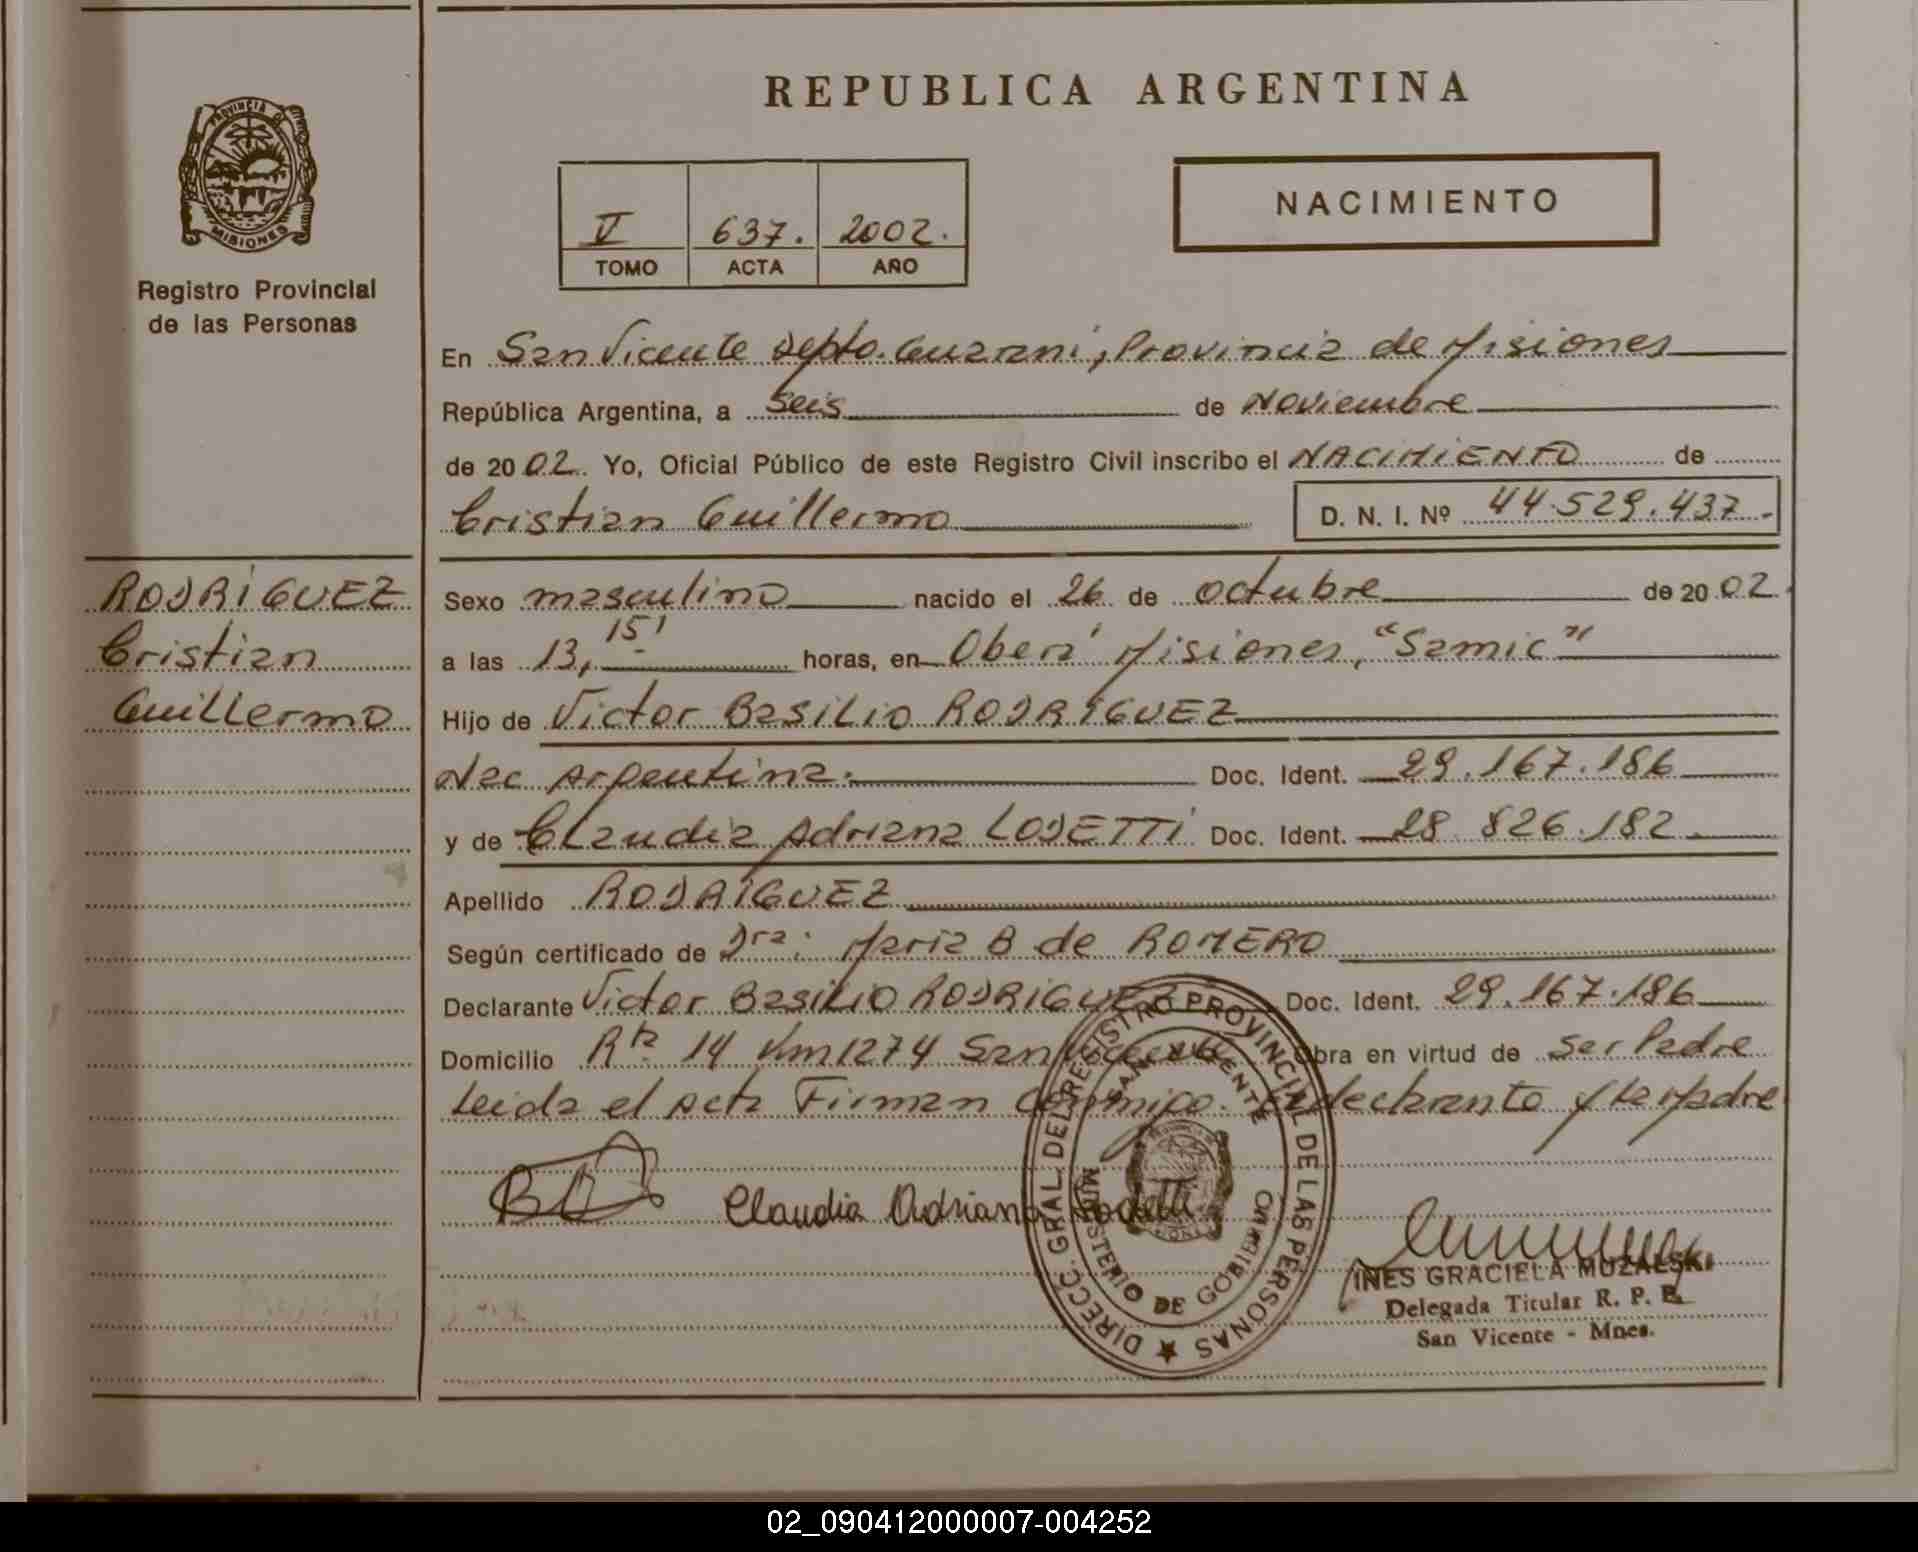 REPUBLICA ARGENTINA
PROVINCIA D
MISIONES
Registro Provincial
de las Personas
V 637. 2002.
TOMO ACTA AÑO
NACIMIENTO
En San Vicente Depto. Guarani, Provincia de Misiones
República Argentina, a seis de Noviembre
de 2002. Yo, Oficial Público de este Registro Civil inscribo el NACIMIENTO de
Cristian Guillermo D. N. I. Nº 44.529.437.-
RODRÍGUEZ
Cristian
Guillermo
Sexo masculino nacido el 26 de octubre de 2002.
a las 13,15' horas, en Oberá Misiones, "Samic"
Hijo de Victor Basilio RODRÍGUEZ
Nac Argentina.- Doc. Ident. 29.167.186
y de Claudia Adriana LODETTI Doc. Ident. 28 826.182.
Apellido RODRÍGUEZ
Según certificado de Dra: Maria B de ROMERO
Declarante Victor Basilio RODRIGUEZ Doc. Ident. 29.167.186
Domicilio Rta 14 Km 1274 San Vicente Obra en virtud de ser Padre
Leida el Acta Firman conmigo. El declarante y la Madre
Claudia Adriana Lodetti
DIRECC. GRAL. DEL REGISTRO PROVINCIAL DE LAS PERSONAS
SAN VICENTE
MINISTERIO DE GOBIERNO
INES GRACIELA MUZALSKI
Delegada Titular R. P. P.
San Vicente - Mnes.
02_090412000007-004252